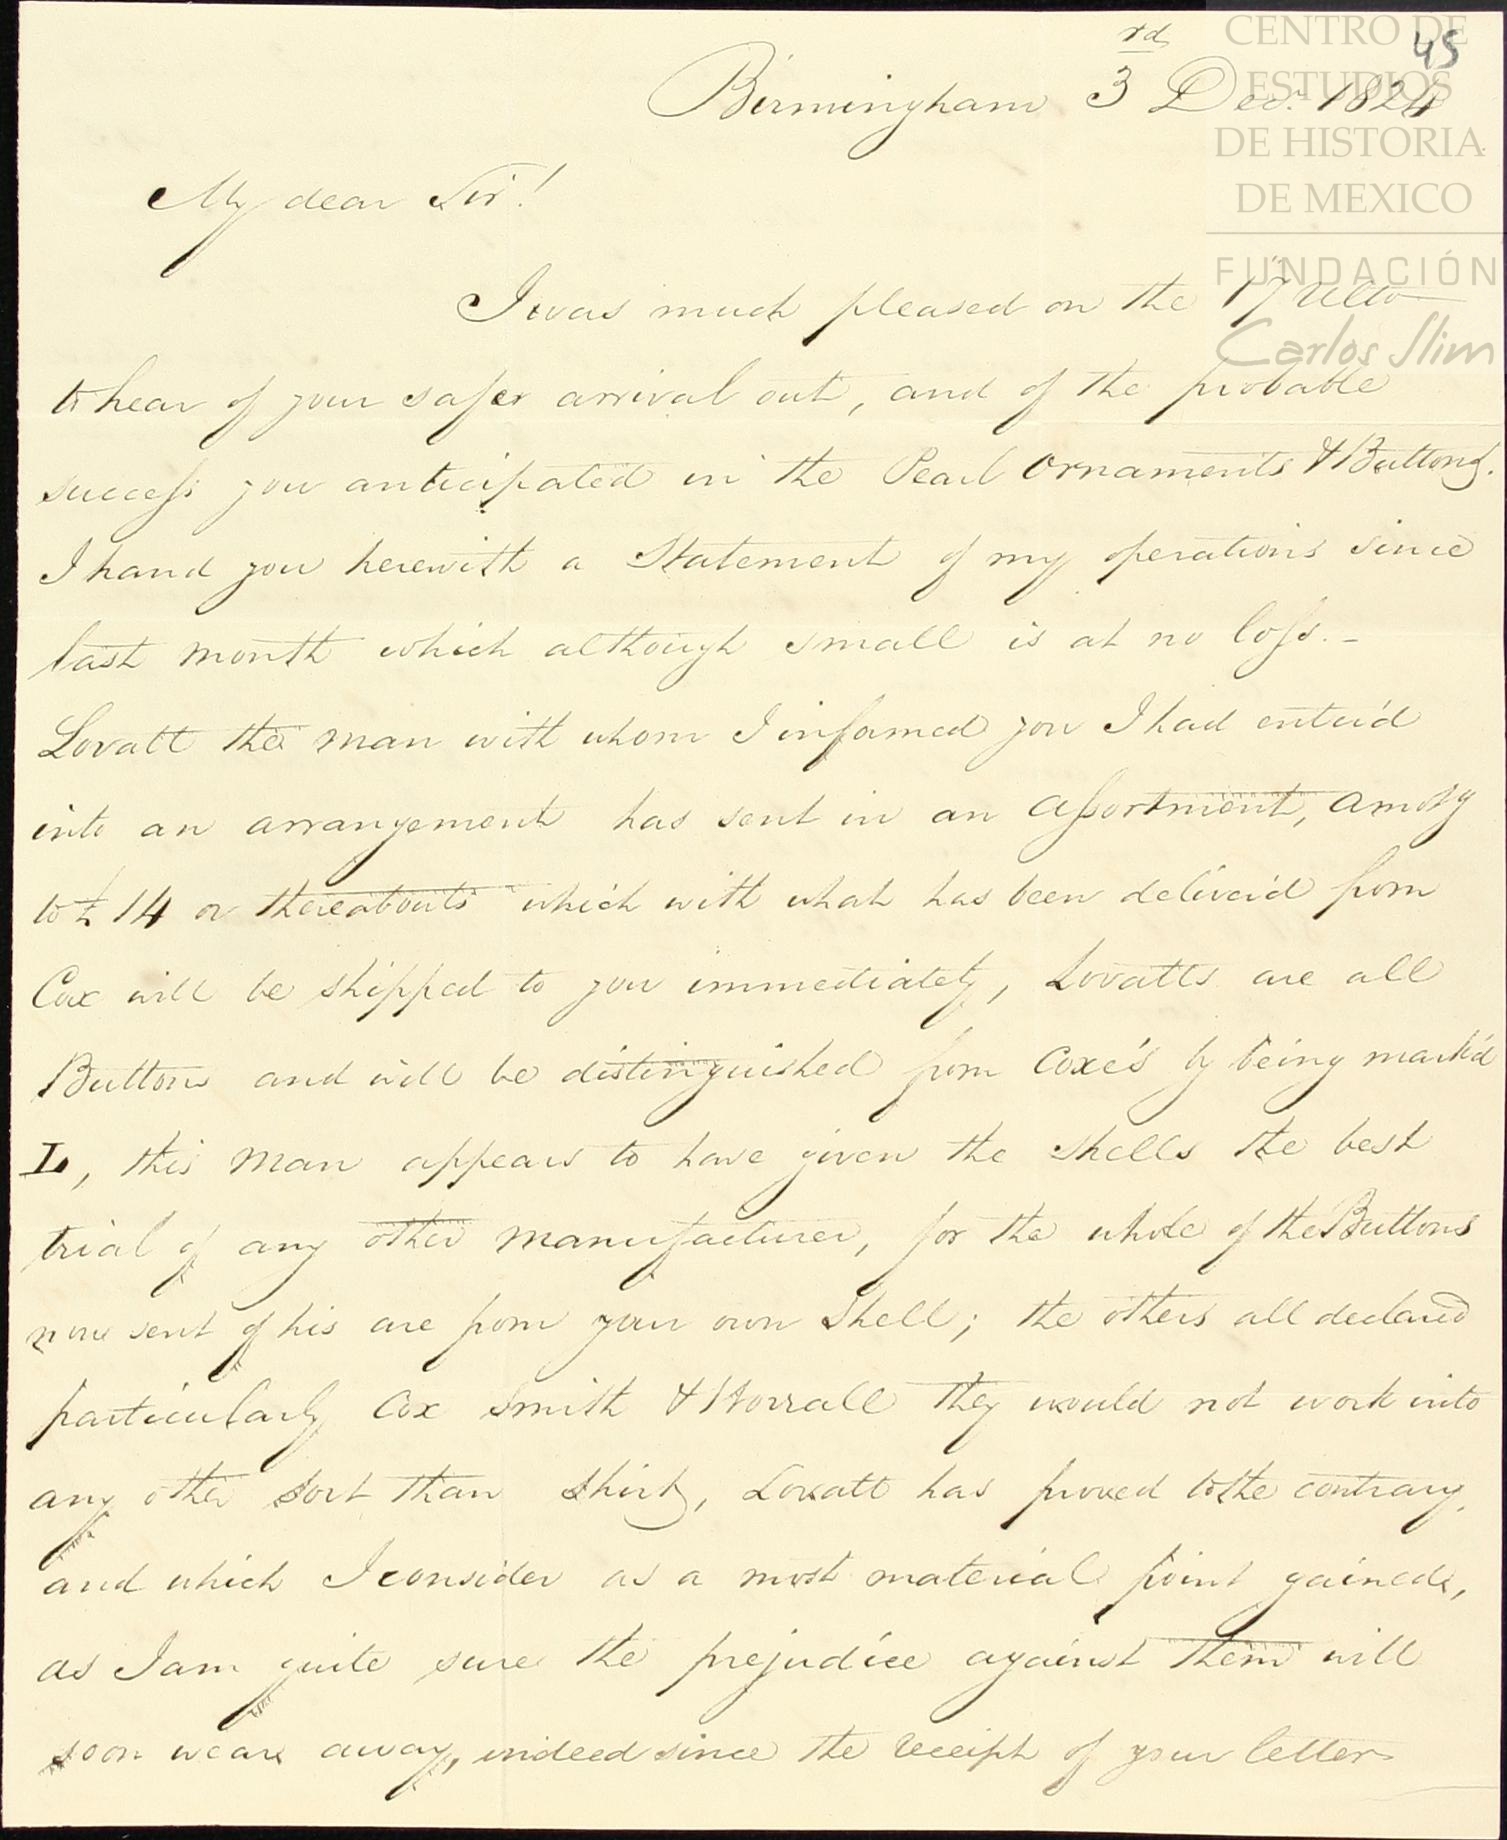 45
CENTRO DE
ESTUDIOS
DE HISTORIA
DE MEXICO
FUNDACIÓN
Carlos Slim
Birmingham 3rd Decr. 1824
My dear Sir!
I was much pleased on the 17 Ulto
to hear of your safe arrival out, and of the probable
success you anticipated in the Pearl Ornaments & Buttons.
I hand you herewith a Statement of my operations since
last month which although small is at no loss. -
Lovatt the man with whom I informed you I had enter'd
into an arrangement has sent in an assortment, amotg
to £14 or thereabouts which with what has been deliver'd from
Cox will be shipped to you immediately, Lovatts are all
Buttons and will be distinguished from Coxe's by being mark'd
L, this man appears to have given the shells the best
trial of any other manufacturer, for the whole of the Buttons
now sent of his are from your own Shell; the others all declared
particularly Cox Smith & Worrall they would not work into
any other sort than Shirt, Lovatt has proved to the contrary,
and which I consider as a most material point gained,
as I am quite sure the prejudice against them will
soon wear away, indeed since the receipt of your letter